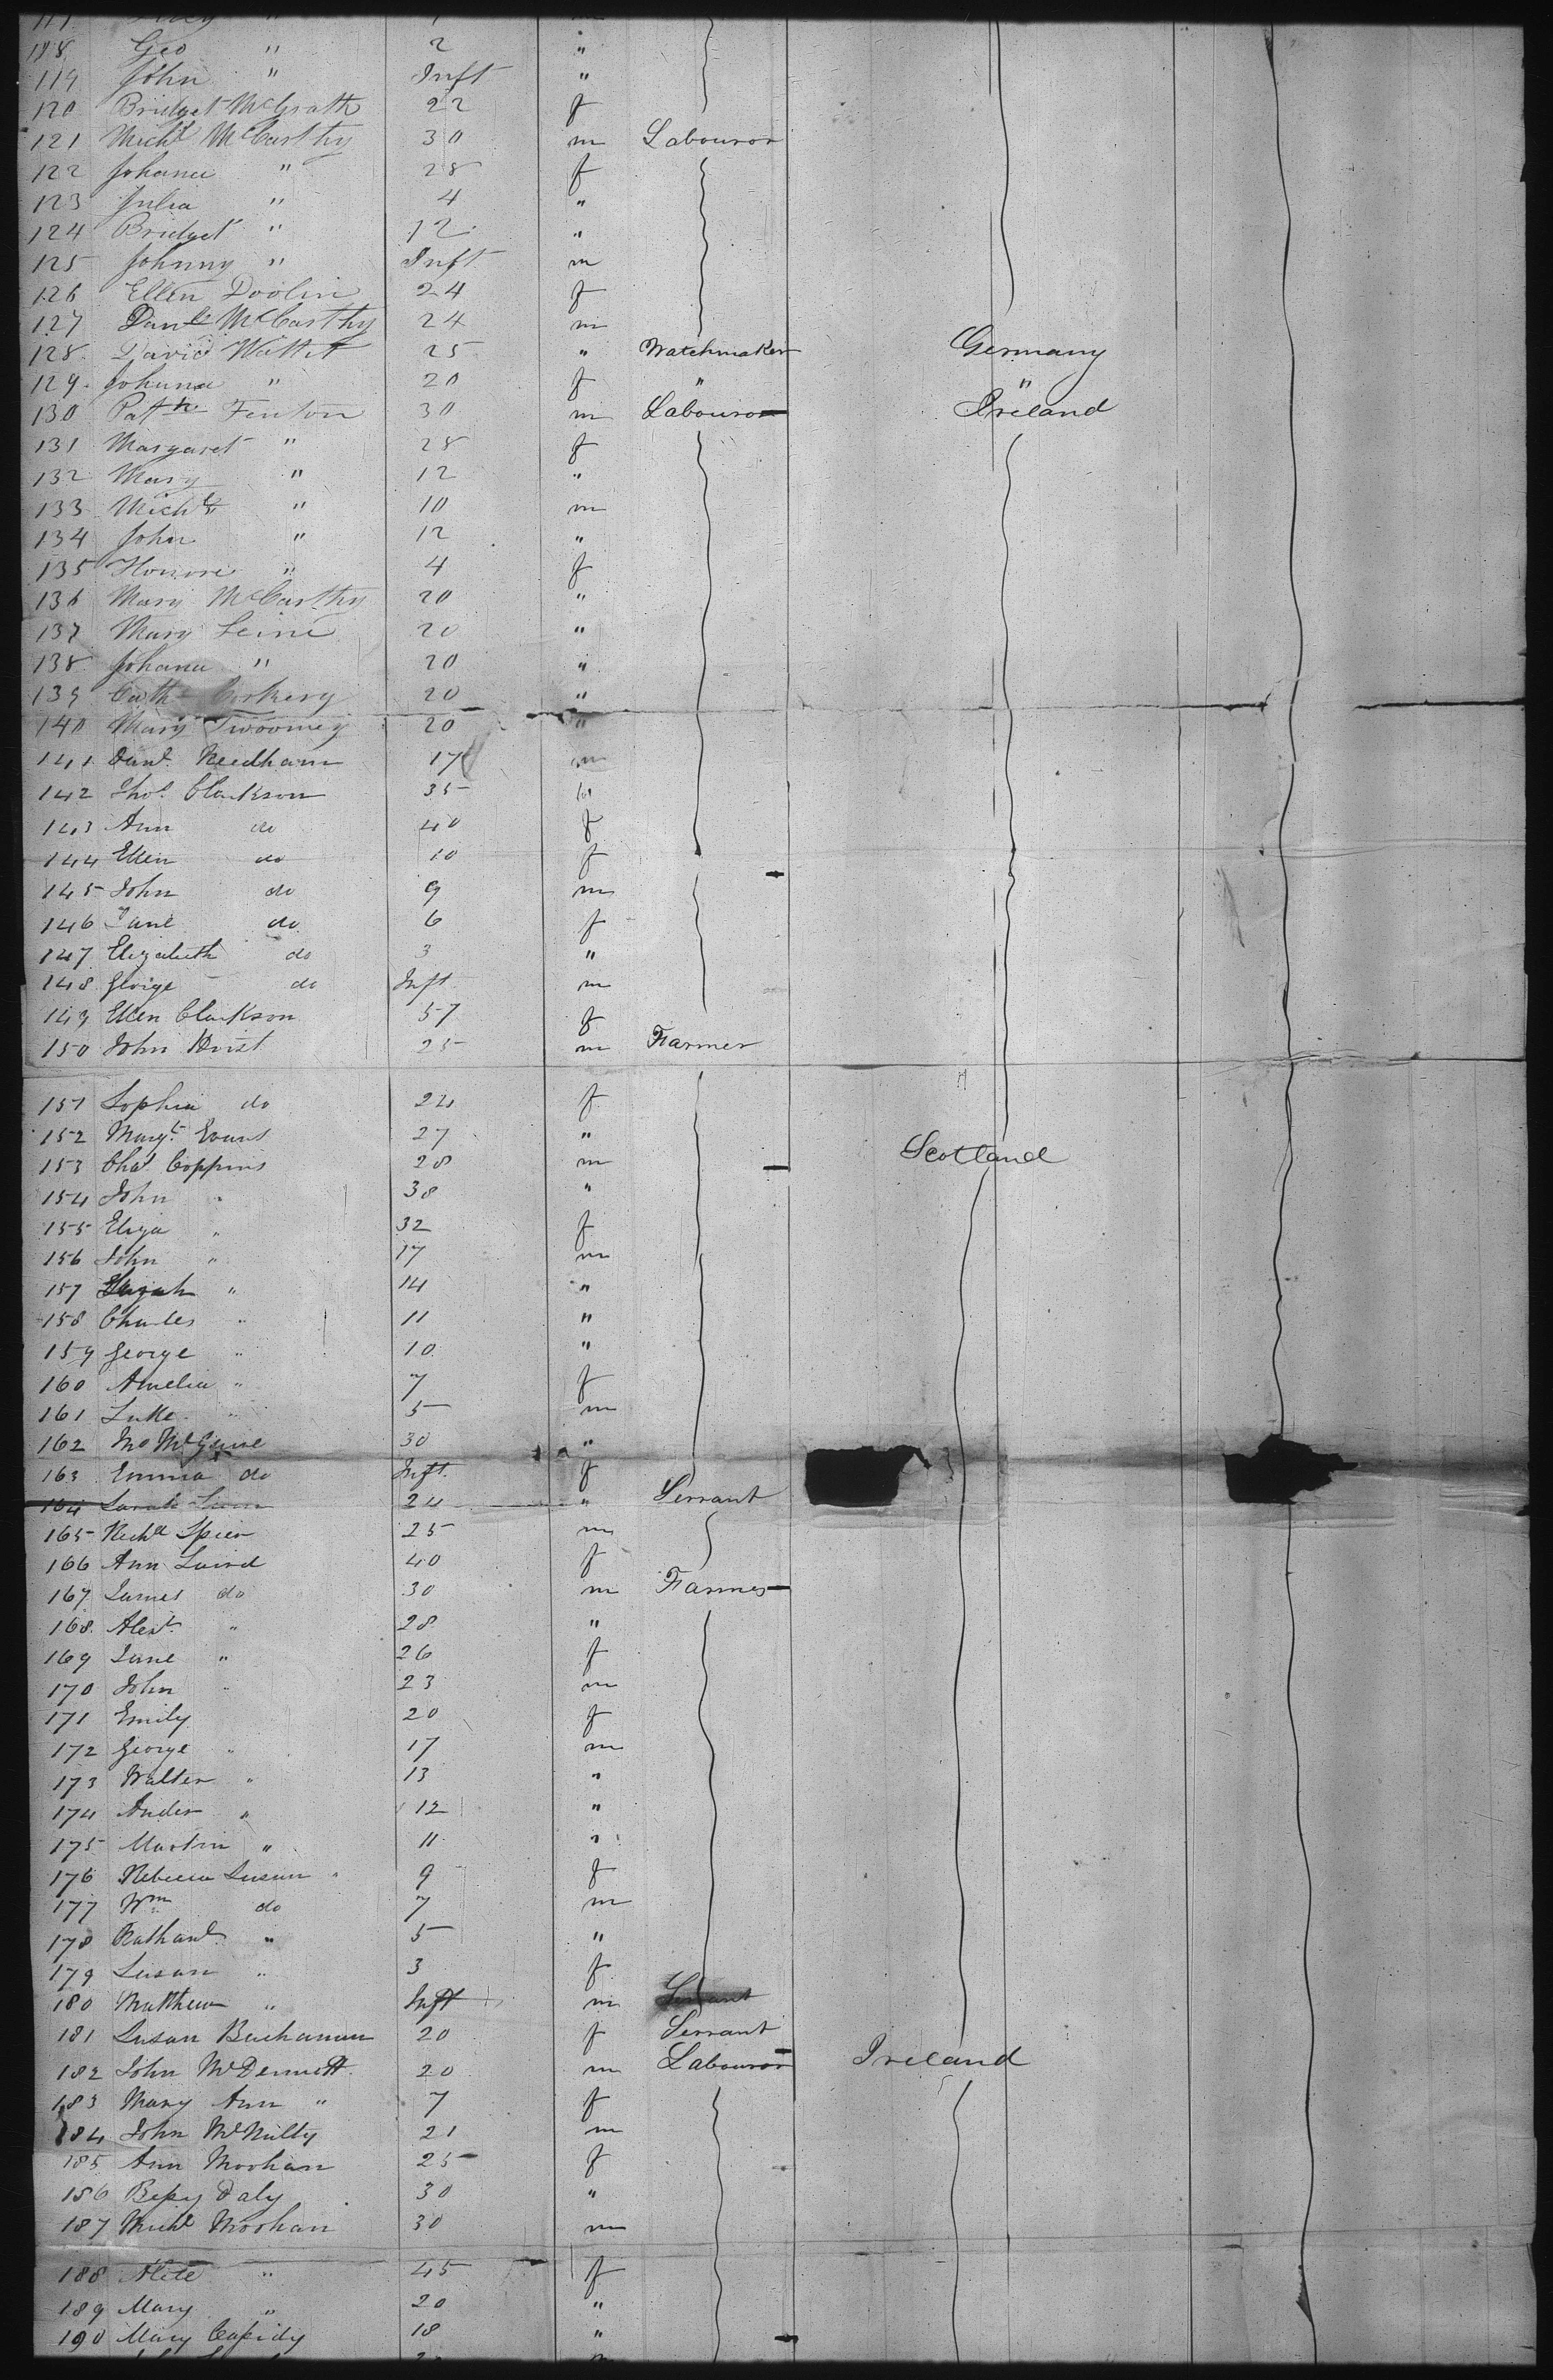 118 Geo " 2 "
119 John " Inft "
120 Bridget McGrath 22 f
121 Michl McCarthy 30 m Labouror
122 Johana " 28 f
123 Julia " 4 "
124 Bridget " 12 "
125 Johnny " Inft m
126 Ellen Doolin 24 f
127 Danl McCarthy 24 m
128 David 25 " Watchmaker Germany
129 Johana " 20 f " "
130 Patk Fenton 30 m Labouror Ireland
131 Margaret " 28 f
132 Mary " 12 "
133 Michl " 10 m
134 John " 12 "
135 Honore " 4 f
136 Mary McCarthy 20 "
137 Mary Leine 20 "
138 Johana " 20 "
139 Cath Corkery 20 "
140 Mary Twoomey 20 "
141 Danl Needham 17 m
142 Thos Clarkson 35
143 Ann do 40 f
144 Ellen do 10 f
145 John do 9 m
146 Jane do 6 f
147 Elizabeth do 3 "
148 George do Inft m
149 Ellen Clarkson 57 f
150 John 25 m Farmer
151 Sophia do 24 f
152 Margt Evans 27 "
153 Chas Coppins 28 m Scotland
154 John " 38 "
155 Eliza " 32 f
156 John " 17 m
157 " 14 "
158 Charles " 11 "
159 George " 10 "
160 Amelia " 7 f
161 Luke " 5 m
162 30 "
163 Emma do Inft f
164 Sarah 24 " Servant
165 Richd Spier 25 m
166 Ann Laird 40 f
167 James do 30 m Farmer
168 Alexr " 28 "
169 Jane " 26 f
170 John " 23 m
171 Emily 20 f
172 George " 17 m
173 Walter " 13 "
174 Ander " 12 "
175 Martin " 11 "
176 Rebecca Susan " 9 f
177 Wm do 7 m
178 Nathanl " 5 "
179 Susan " 3 f
180 Matthew " Inft m Servant
181 Susan Buchanan 20 f Servant
182 John McDermott 20 m Labouror Ireland
183 Mary Ann " 7 f
184 John McNulty 21 m
185 Ann Moohan 25 f
186 Bessy Daly 30 "
187 Michl Moohan 30 m
188 " 45 f
189 Mary " 20 "
190 Mary Cassidy 18 "